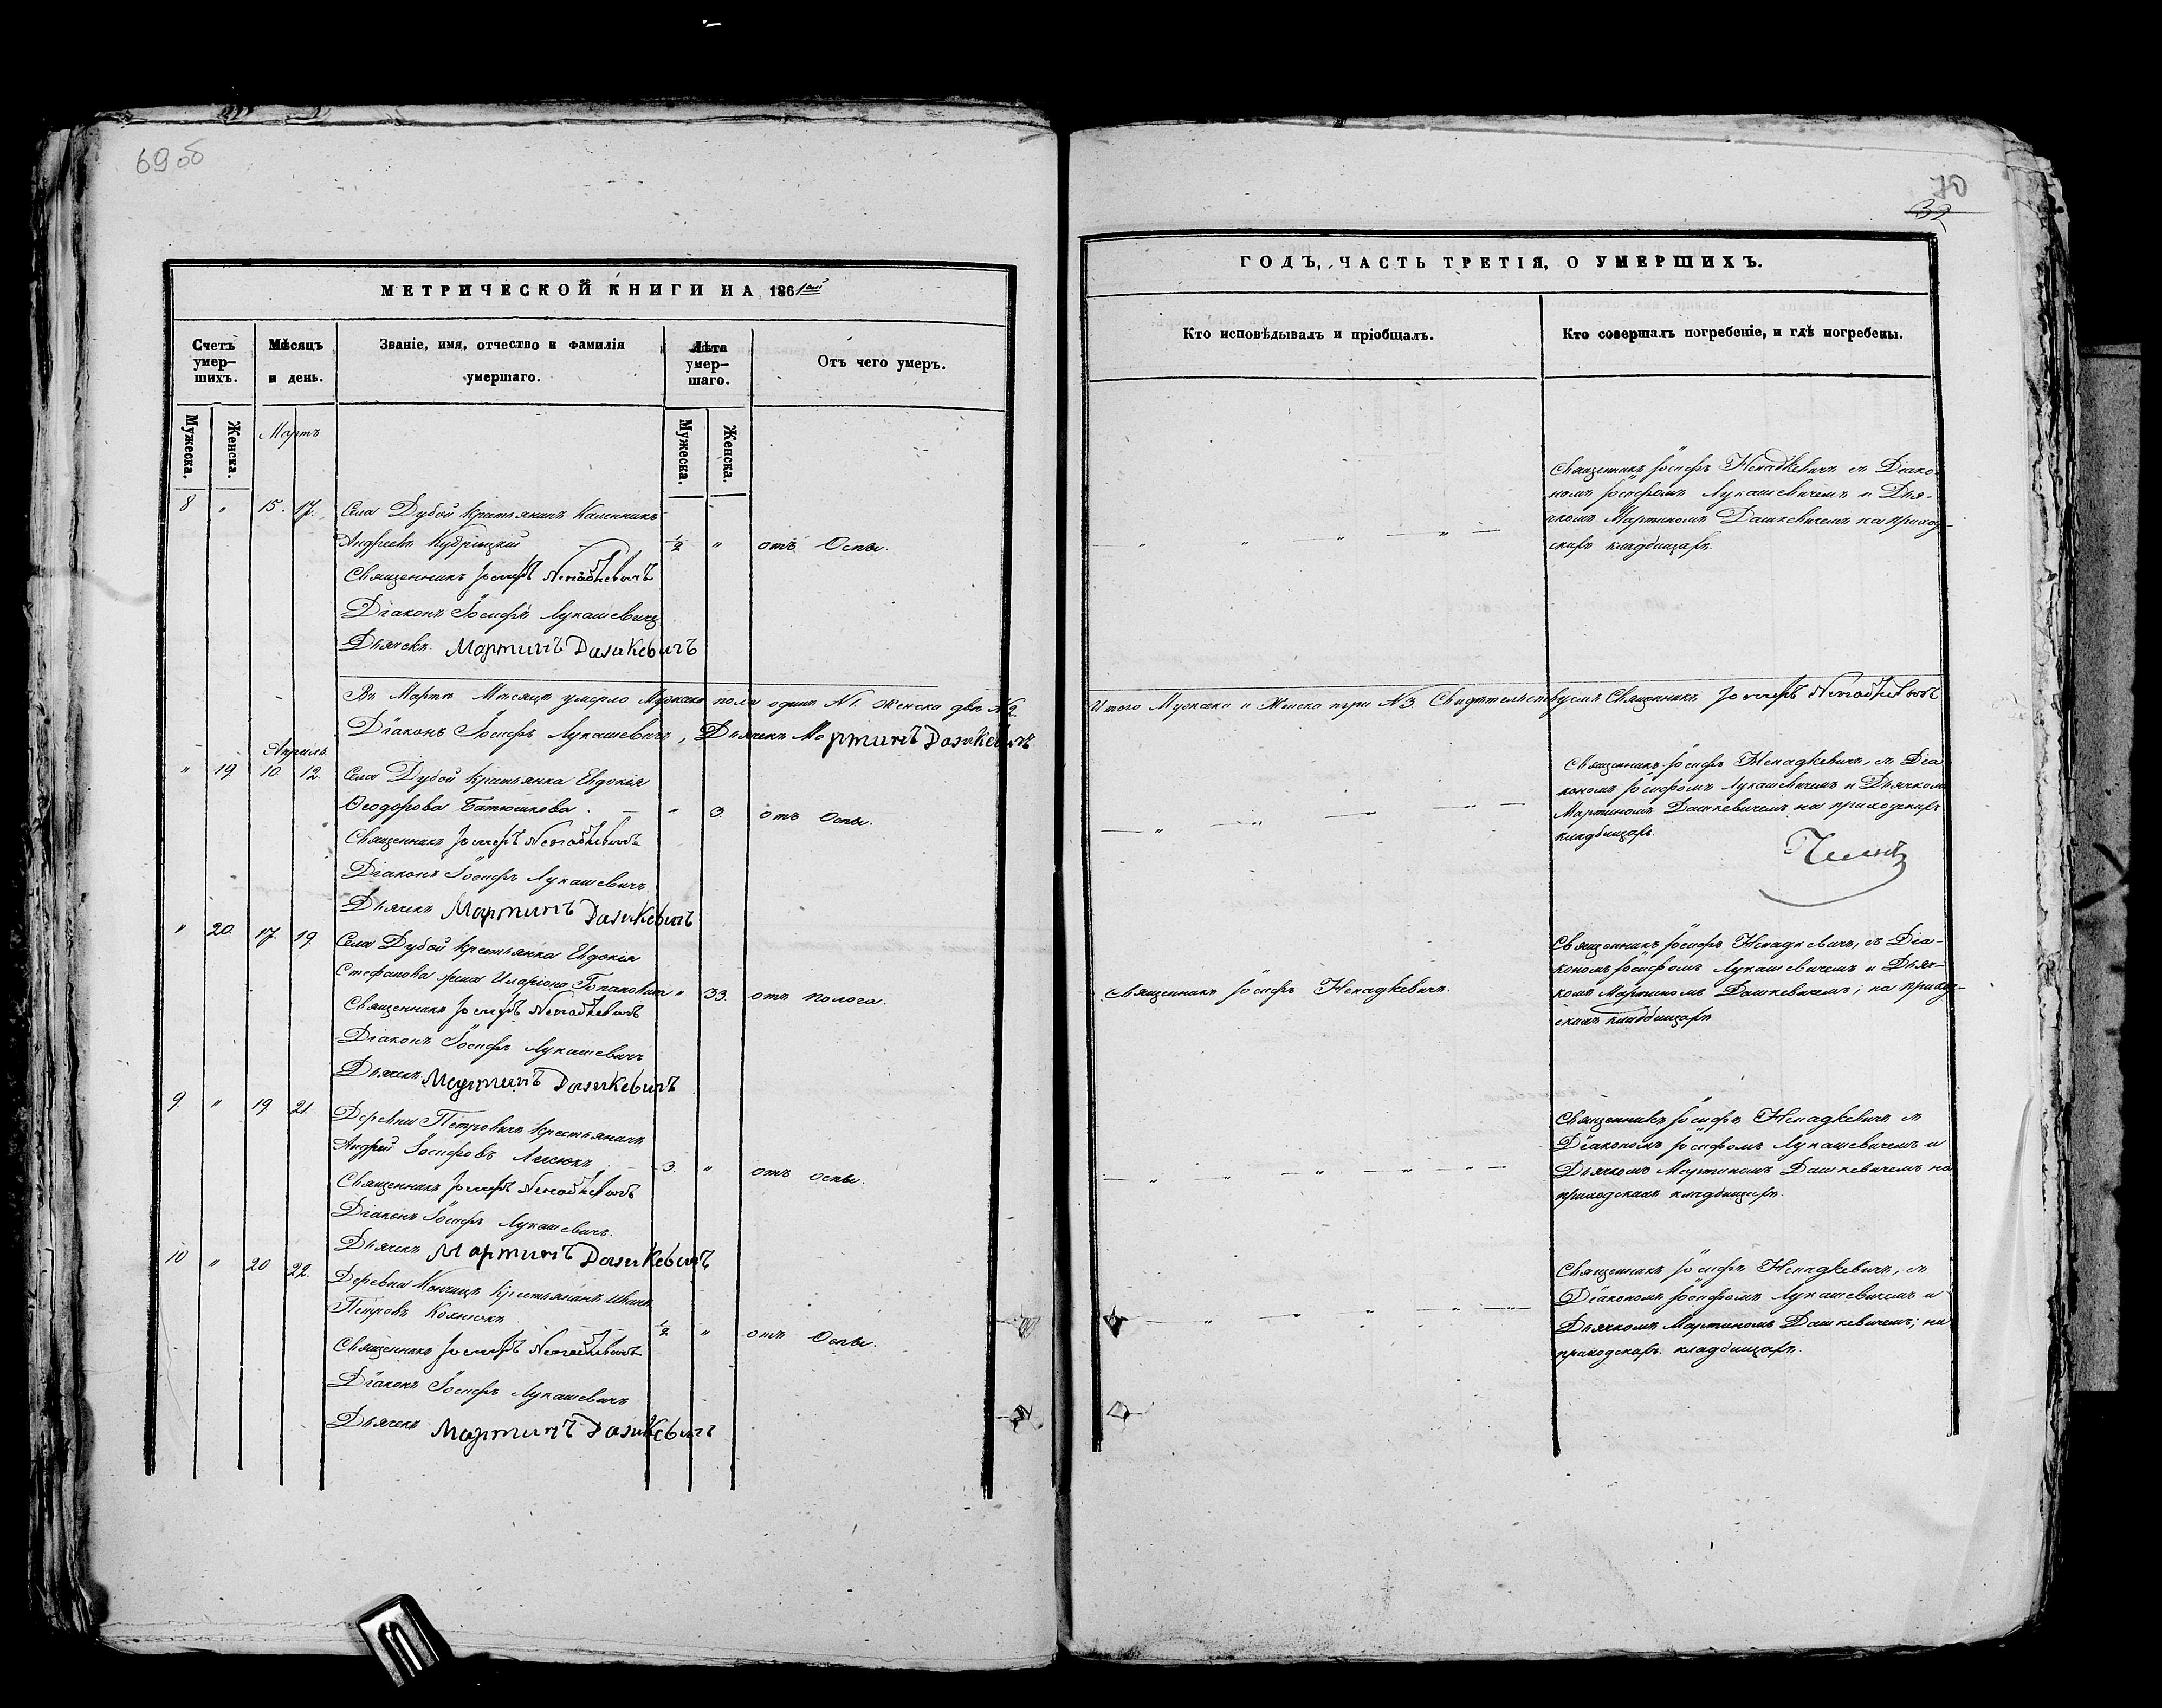 69 об
МЕТРИЧЕСКОЙ КНИГИ НА 1861ый
Счетъ умер-шихъ.
Мѣсяцъ и день.
Званіе, имя, отчество и фамилія умершаго.
Лѣта умер-шаго.
Отъ чего умеръ.
Мужеска.
Женска.
Мартъ
Мужеска.
Женска.
8 " 15. 17. Села Дубой крестьянинъ Каленникъ
Андреевъ Кудрицкій 1/2 " отъ Оспы.
Священникъ Іосифъ Ненадкевичъ
Діаконъ Іосифъ Лукашевичъ
Дьячекъ Мартинъ Дашкевичъ
Въ Мартѣ Мѣсяцѣ умерло Мужска пола одинъ №1. Женска двѣ №2.
Діаконъ Іосифъ Лукашевичъ, Дьячекъ Мартинъ Дашкевичъ
Апрѣль
" 19 10. 12. Села Дубой крестьянка Евдокія
Ѳеодорова Батюшкова. " 3. отъ Оспы.
Священникъ Іосифъ Ненадкевичъ
Діаконъ Іосифъ Лукашевичъ
Дьячекъ Мартинъ Дашкевичъ
" 20. 17. 19. Села Дубой крестьянка Евдокія
Стефанова жена Иларіона " 33. отъ полога.
Священникъ Іосифъ Ненадкевичъ
Діаконъ Іосифъ Лукашевичъ
Дьячекъ Мартинъ Дашкевичъ
9. " 19. 21. Деревни Петровичъ крестьянинъ
Андрей Іосифовъ 3. " отъ оспы.
Священникъ Іосифъ Ненадкевичъ
Діаконъ Іосифъ Лукашевичъ.
Дьячекъ Мартинъ Дашкевичъ
10 " 20 22. Деревни Кончицъ Крестьянинъ Иванъ
Петровъ 1/2 " отъ Оспы.
Священникъ Іосифъ Ненадкевичъ
Діаконъ Іосифъ Лукашевичъ
Дьячекъ Мартинъ Дашкевичъ
70
32
ГОДЪ, ЧАСТЬ ТРЕТІЯ, О УМЕРШИХЪ.
Кто исповѣдывалъ и пріобщалъ.
Кто совершалъ погребеніе, и гдѣ погребены.
Священникъ Іосифъ Ненадкевичъ съ Діако-
номъ Іосифомъ Лукашевичемъ и Дья-
чкомъ Мартиномъ Дашкевичемъ на приход-
скихъ кладбищахъ.
Итого Мужска и Женска три №3. Свидѣтельствуемъ Священникъ Іосифъ Ненадкевичъ
Священникъ Іосифъ Ненадкевичъ, съ Діа-
кономъ Іосифомъ Лукашевичемъ и Дьячкомъ
Мартиномъ Дашкевичемъ на приходскихъ
кладбищахъ.
Священникъ Іосифъ Ненадкевичъ.
Священникъ Іосифъ Ненадкевичъ, съ Діа-
кономъ Іосифомъ Лукашевичемъ и Дьяч-
комъ Мартиномъ Дашкевичемъ; на приход-
скихъ кладбищахъ
Священникъ Іосифъ Ненадкевичъ съ
Діакономъ Іосифомъ Лукашевичемъ и
Дьячкомъ Мартиномъ Дашкевичемъ на
приходскихъ кладбищахъ.
Священникъ Іосифъ Ненадкевичъ, съ
Діакономъ Іосифомъ Лукашевичемъ и
Дьячкомъ Мартиномъ Дашкевичемъ; на
приходскихъ кладбищахъ.